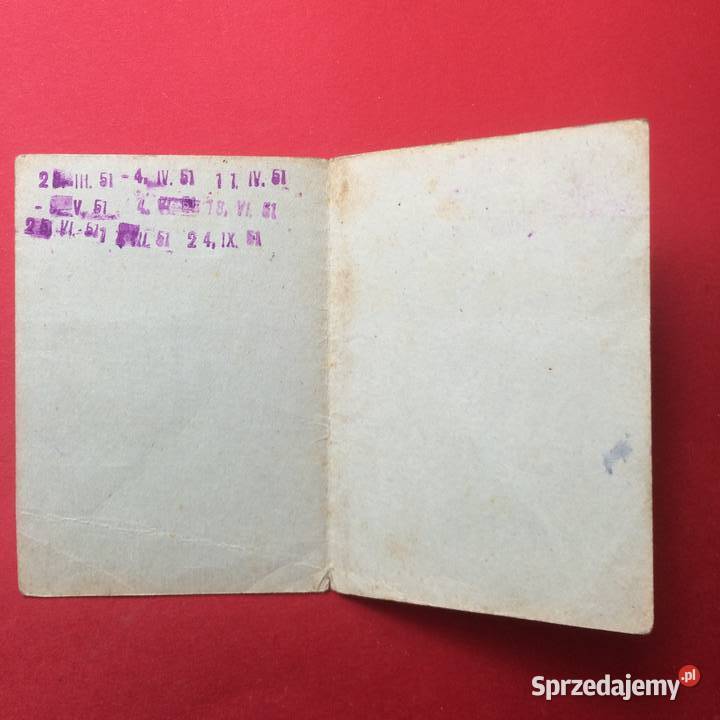 III. 51 - 4, IV. 51 11. IV. 51
V. 51 4. 18, VI. 51
VI. 51 51 24, IX. 51
Sprzedajemy.pl